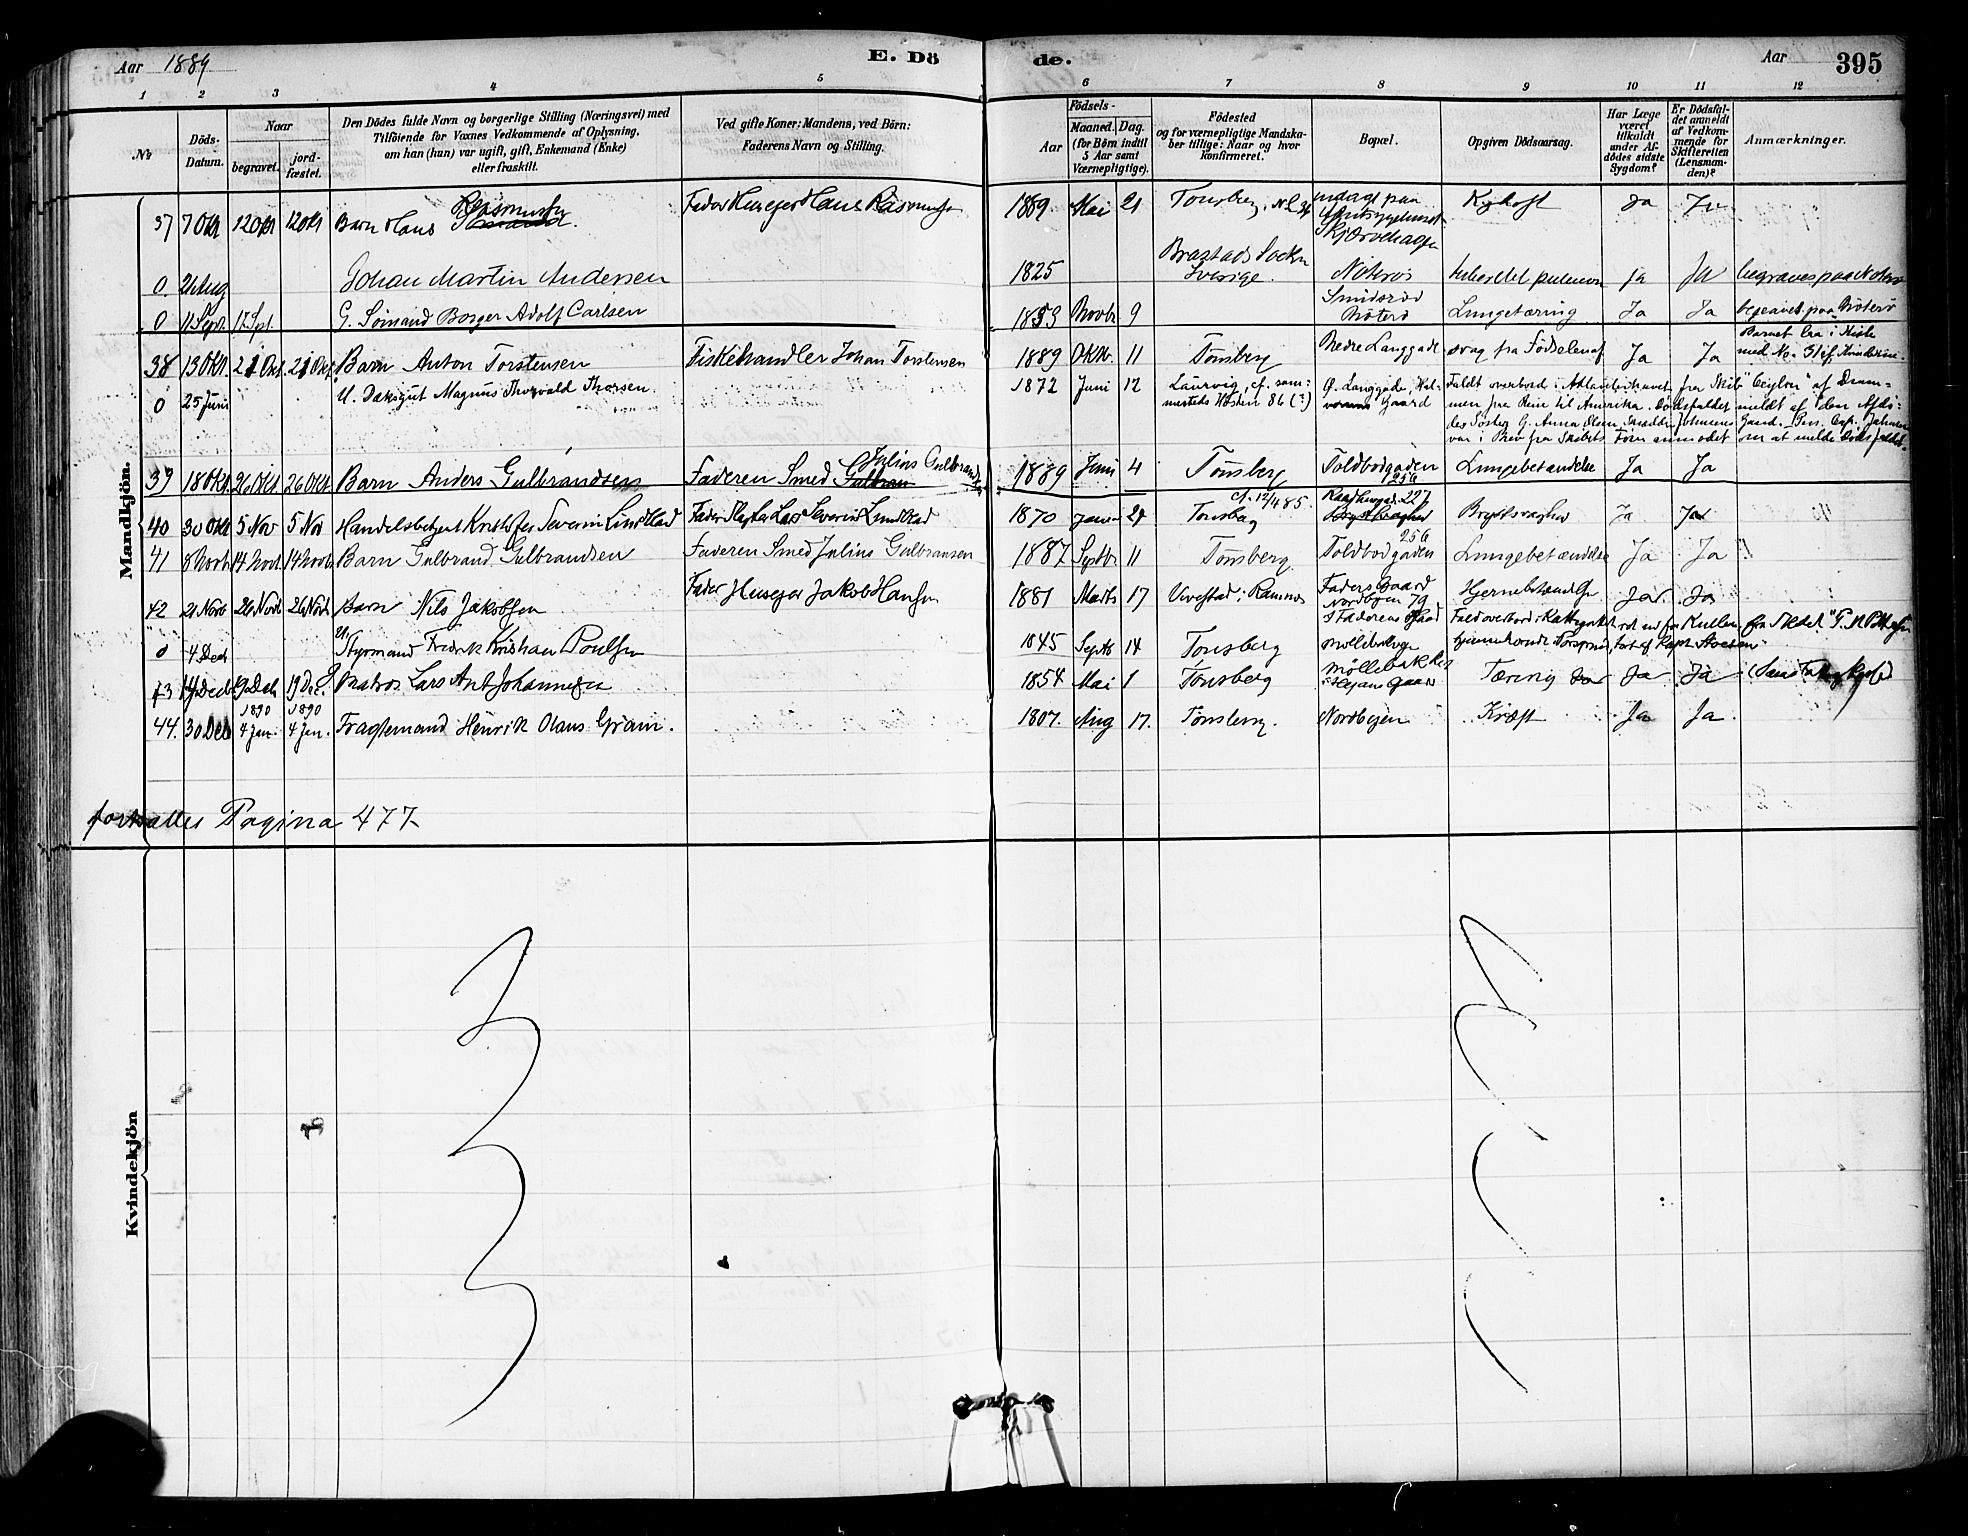 Aar 1889
E. Dö
de.
Aar
395
1 2 3 4 5 6 7 8 9 10 11 12
No
Döds-Datum.
Naar
begravet.
jord-fæstet.
Den Dödes fulde Navn og borgerlige Stilling (Næringsvei) med
Tilföiende for Voxnes Vedkommende af Oplysning,
om han (hun) var ugift, gift, Enkemand (Enke)
eller fraskilt.
Ved gifte Koner: Mandens, ved Börn:
Faderens Navn og Stilling.
Födsels-
Aar
Maaned. Dag.
(for Börn indtil
5 Aar samt
Værnepligtige).
Födested
og for værnepligtige Mandska-
ber tillige: Naar og hvor
konfirmeret.
Bopæl.
Opgiven Dödsaarsag.
Har Læge
været
tilkaldt
under Af-
dödes sidste
Sygdom?
Er Dödsfal-
det anmeldt
af Vedkom-
mende for
Skifteretten
(Lensman-
den)?
Anmærkninger.
Mandkjön.
37 7 Okt 12 Okt 12 Okt Barn Hans Rasmussen Fader Husejer Hans Rasmussen 1889 Mai 21 Tønsberg Ja Ja
0 21 Aug Johan Martin Andersen 1825 Brastads Sockn Sverige. Nøterø Ja Ja begraves paa Nøterø
0 11 Sept. 17 Sept. G. Sömand Borger Adolf Carlsen 1853 Novbr 9 Smidsrød Nøterø Lungetæring Ja Ja begravet paa Nøterø
38 13 Okt. 21 Okt. 21 Okt. Barn Anton Torstensen Fiskehandler Johan Torstensen 1889 Oktb. 11 Tönsberg Nedre Langgade svag fra Fødselen af Ja Ja Barnet laa i Kiste med No. 31 af Kvinderne
0 25 Juni U. Dæksgut Magnus Thorvald Thorsen. 1872 Juni 12 Laurvig, cf. sam-mesteds Høsten 86 (?) Ø. Langgade, Gaard Faldt overbord i Atlanterhavet fra Skib "Ceylon" af Dram-
men fra Rio til Amerika. Dødsfaldet meldt af den Afdø-
des Søster G. Anna Olsen
var i Brev fra Skibets Fører anmodet om at melde Dødsfaldet
39 18 Okt. 26 Okt. 26 Okt. Barn Anders Gulbrandsen Faderen Smed Julius Gulbrandsen 1889 Juni 4 Tönsberg Toldbodgaden 256 Lungebetændelse Ja Ja
40 30 Okt 5 Nov 5 Nov Handelsbetjent Kristoffer Severin Lindstad Fader Lars Severin Lindstad 1870 Januar Tønsberg cf. 12/4 85. 227 Brystsvaghed Ja Ja
41 8 Novb 14 Novb. 14 Novb. Barn Gulbrand Gulbrandsen Faderen Smed Julius Gulbransen 1887 Septbr 11 Tönsberg. Toldbodgaden 256 Lungebetændelse Ja Ja
42 21 Novb 26 Novb 26 Novb Barn Nils Jakobsen Fader Huseger Jakob Hansen 1881 Marts 17 Vivestad i Ramnes Faders Gaard Nordbyen 79 Hjernebetændelse Ja Ja
0 4 Dec U. Styrmand Fredrik Kristian Poulsen 1845 Septb 14 Tønsberg I Faderens Gaard Møllebakken Fald overbord i Kattegattet ret ud for Kullen fra Skibet
43 14 Decb 19 Decb 19 Dec. Matros Lars Ant. Johannesen 1854 Mai 1 Tønsberg Møllebakken Tæring Ja Ja
44. 30 Decb 1890 4 Jan. 1890 4 Jan. Fragtemand Henrik Olaus Gram. 1807. Aug 17. Tønsberg. Nordbyen Kræft Ja Ja
fortsættes Pagina 477
Kvindekjön